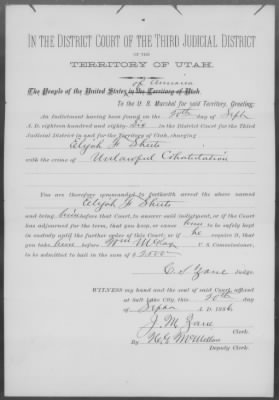 IN THE DISTRICT COURT OF THE THIRD JUDICIAL DISTRICT
OF THE
TERRITORY OF UTAH.
of America
The People of the United States in the Territory of Utah,
To the U. S. Marshal for said Territory, Greeting:
An Indictment having been found on the 20th day of Septr
A. D. eighteen hundred and eighty-six in the District Court for the Third
Judicial District in and for the Territory of Utah, charging
Elijah F. Sheets
with the crime of Unlawful Cohabitation
You are therefore commanded to forthwith arrest the above named
Elijah F Sheets
and bring him before that Court, to answer said indictment, or if the Court
has adjourned for the term, that you keep, or cause him to be safely kept
in custody until the further order of this Court; or if he requires it, that
you take him before Wm McKay U. S. Commissioner,
to be admitted to bail in the sum of $
C. S. Zane Judge.
WITNESS my hand and the seal of said Court affixed
at Salt Lake City, this 20th day
of Septr A. D. 1886
J. M. Zane
Clerk.
By H. G. McMillan
Deputy Clerk.